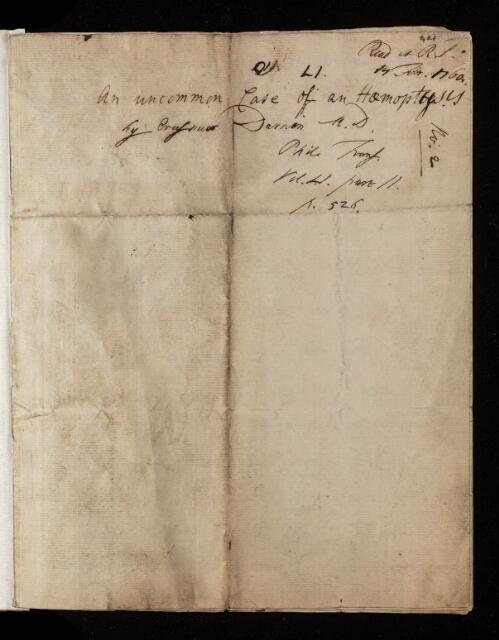 Read at R.S.
1760.
LI.
An uncommon Case of an Hæmoptysis
by Erasmus Darwin M.D.
No. 2
Phil. Trans.
Vol. LI. part II.
p. 526.